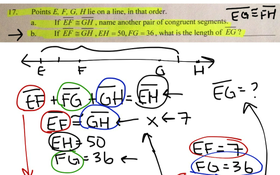 17. Points E, F, G, H lie on a line, in that order.
EG ≅ FH
a. If EF ≅ GH, name another pair of congruent segments.
→ b. If EF ≅ GH, EH = 50, FG = 36, what is the length of EG ?
E F G H
EF + FG + GH = EH ←
EG = ?
EF = GH ← x ← 7
EH = 50
FG = 36 ←
EF = 7
FG = 36